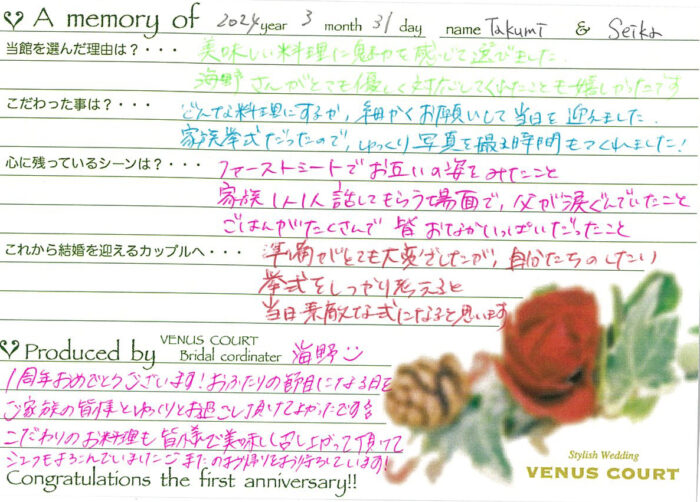 A memory of 2024 year 3 month 31 day name Takumi & Seika
当館を選んだ理由は？・・・ 美味しい料理に魅力を感じて選びました。
海野さんがとても優しく対応してくれたことも嬉しかったです
こだわった事は？・・・ どんな料理にするか、細かくお願いして当日を迎えました。
家族挙式だったので、ゆっくり写真を撮る時間もつくれました！
心に残っているシーンは？・・・ ファーストミートでお互いの姿をみたこと
家族1人1人話してもらう場面で、父が涙ぐんでいたこと
ごはんがたくさんで 皆 おなかいっぱいだったこと
これから結婚を迎えるカップルへ・・・ 準備がとても大変でしたが、自分たちのしたい
挙式をしっかり考えると
当日素敵な式になると思います
Produced by VENUS COURT Bridal cordinater 海野
1周年おめでとうございます！おふたりの節目になる日を
ご家族の皆様とゆっくりとお過ごし頂けてよかったです
こだわりのお料理も皆様で美味しく召し上がって頂けて
シェフもよろこんでいました またのお帰りをお待ちしています！
Congratulations the first anniversary!!
Stylish Wedding
VENUS COURT